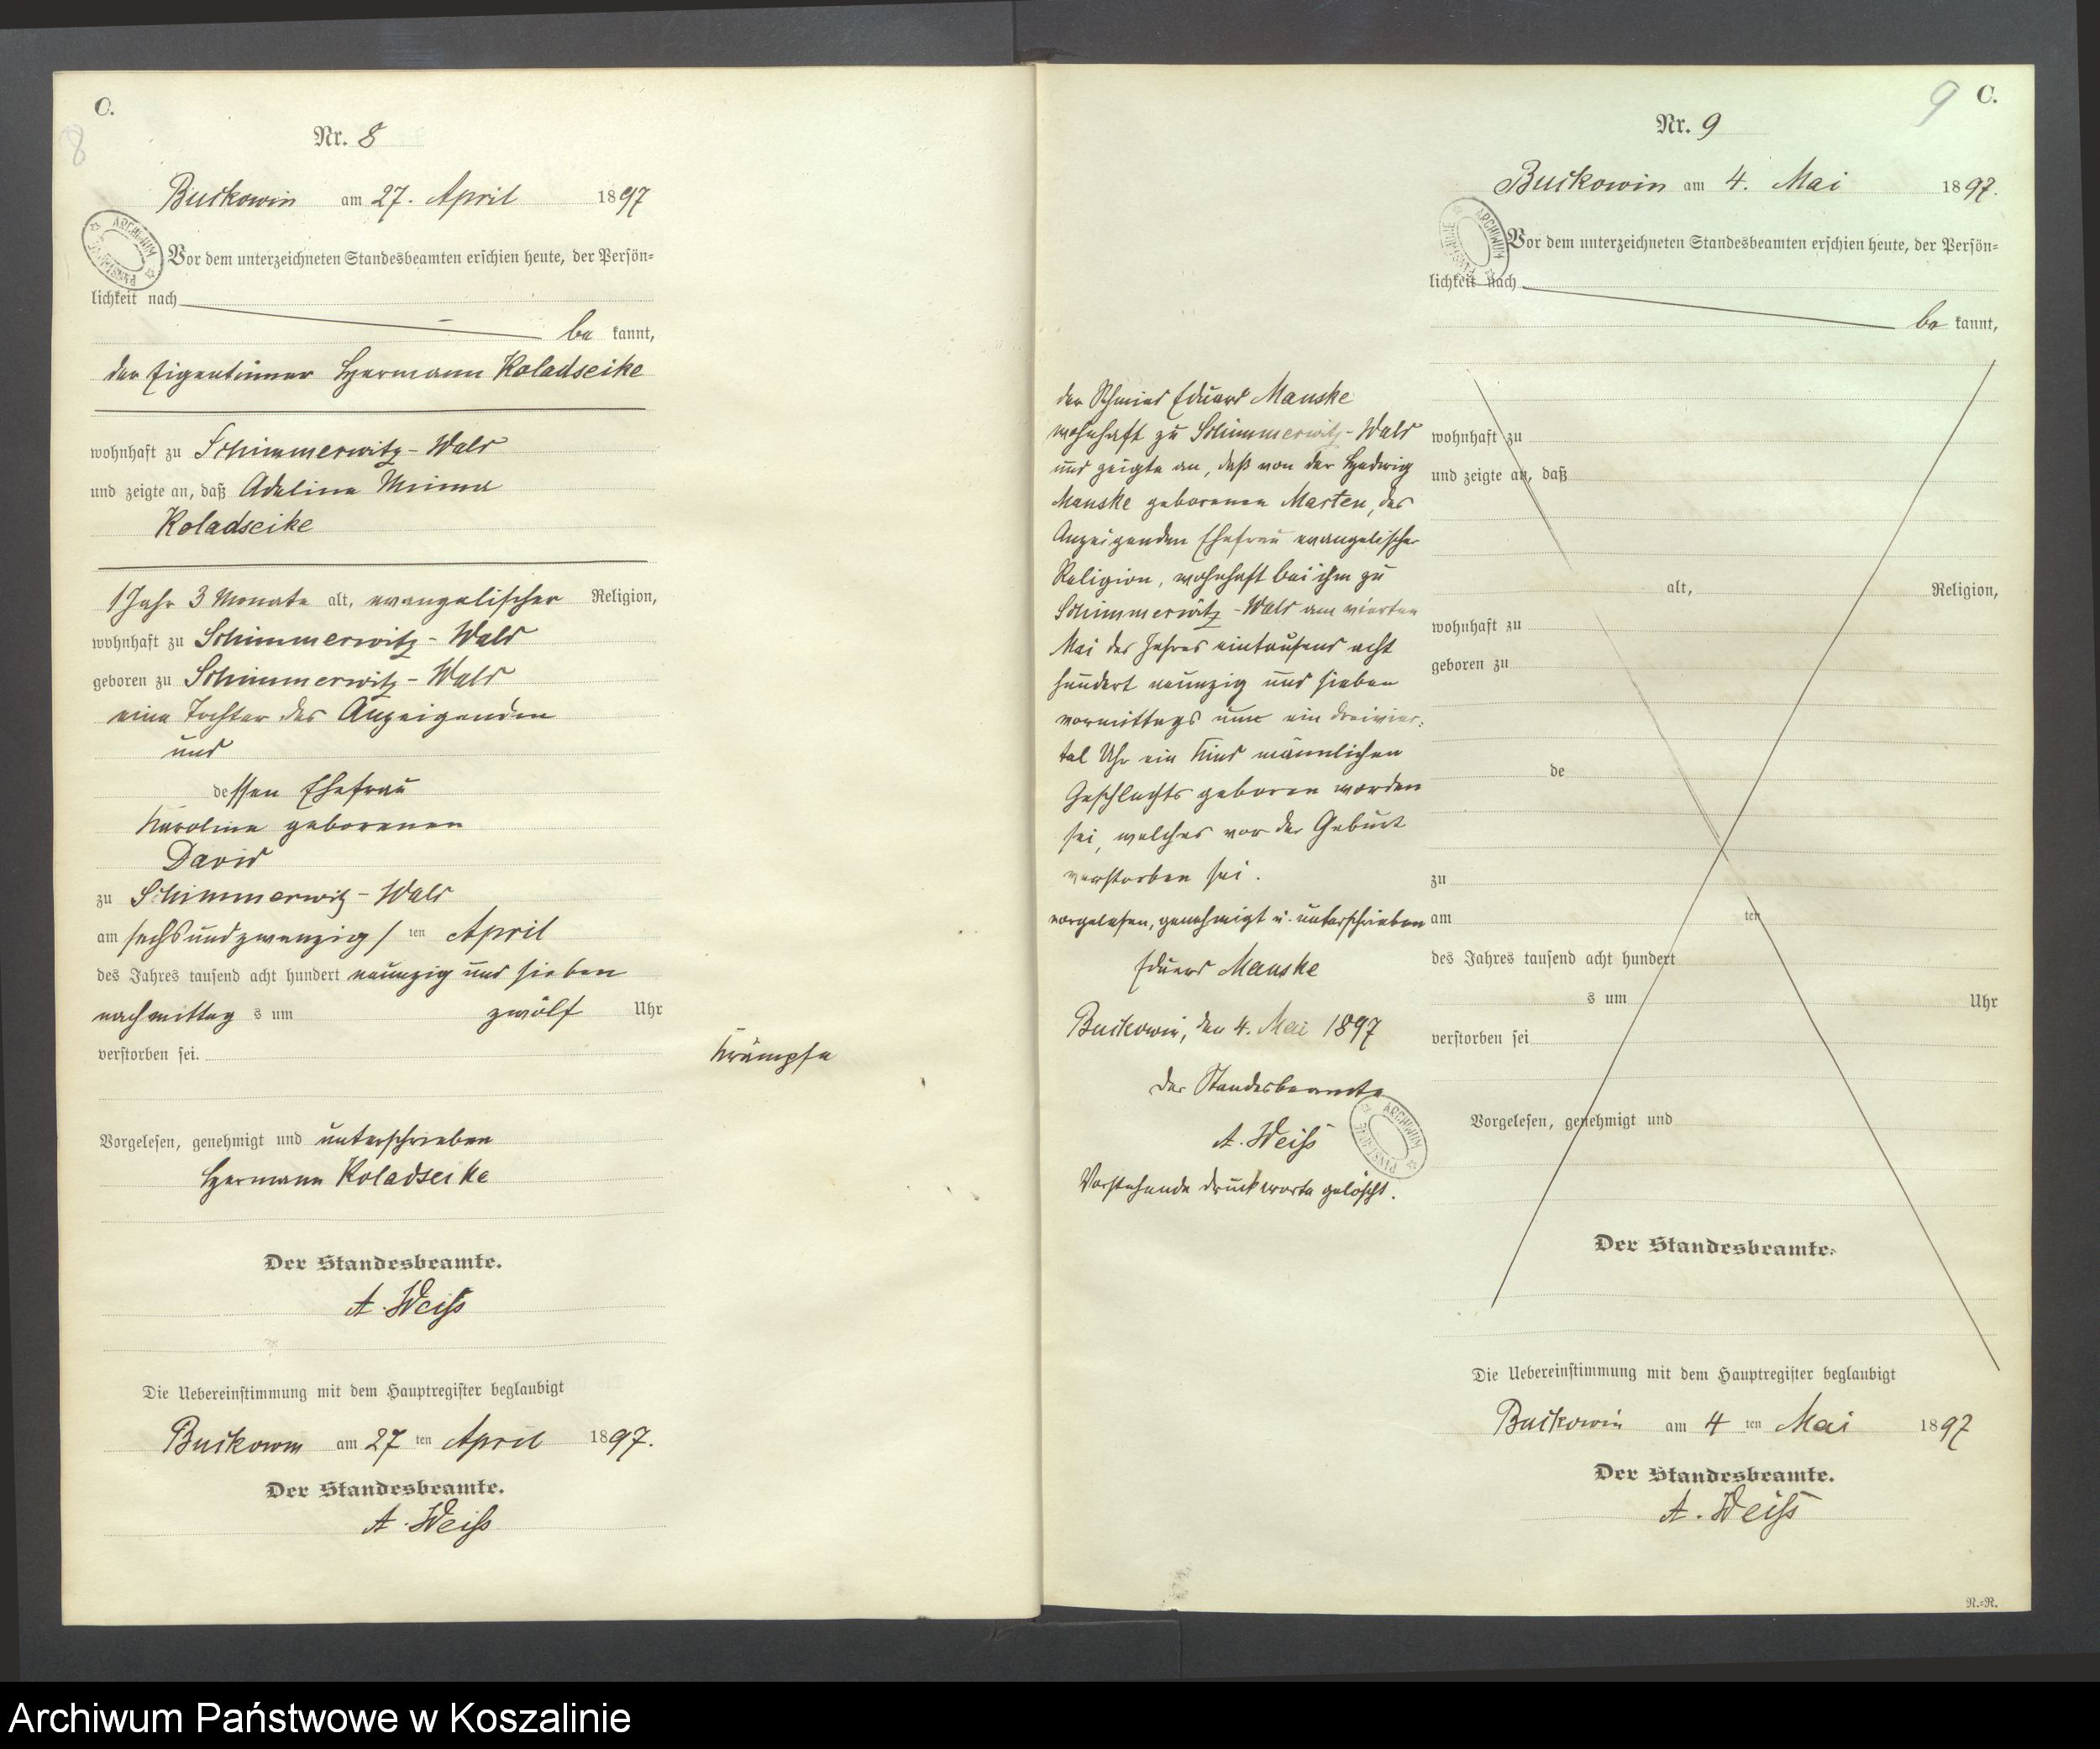 C.
8
Nr. 8
Buckowin am 27. April 1897
ARCHIWUM PAŃSTWOWE
Vor dem unterzeichneten Standesbeamten erschien heute, der Persön=
lichkeit nach
be kannt,
der Eigentümer Hermann Koladseike
wohnhaft zu Schimmerwitz-Wald
und zeigte an, daß Adeline Minna
Koladseike
1 Jahr 3 Monate alt, evangelischer Religion,
wohnhaft zu Schimmerwitz-Wald
geboren zu Schimmerwitz-Wald
eine Tochter des Anzeigenden
und
dessen Ehefrau
Karoline geborenen
David
zu Schimmerwitz-Wald
am sechsundzwanzig/ten April
des Jahres tausend acht hundert neunzig und sieben
nachmittag s um zwölf Uhr
verstorben sei.
Krämpfe
Vorgelesen, genehmigt und unterschrieben
Hermann Koladseike
Der Standesbeamte.
A. Weiß
Die Uebereinstimmung mit dem Hauptregister beglaubigt
Buckowin am 27 ten April 1897.
Der Standesbeamte.
A. Weiß
9 C.
Nr. 9
Buckowin am 4. Mai 1897.
ARCHIWUM PAŃSTWOWE
Vor dem unterzeichneten Standesbeamten erschien heute, der Persön=
lichkeit nach
be kannt,
der Schmied Eduard Manske
wohnhaft zu Schimmerwitz-Wald
und zeigte an, daß von der Hedwig
Manske geborenen Marten, des
Anzeigenden Ehefrau evangelischer
Religion, wohnhaft bei ihm zu
Schimmerwitz-Wald am vierten
Mai des Jahres eintausend acht
hundert neunzig und sieben
vormittags um ein dreivier:
tel Uhr ein Kind männlichen
Geschlechts geboren worden
sei, welches vor der Geburt
verstorben sei.
vorgelesen, genehmigt u. unterschrieben
Eduard Manske
Buckowin, den 4. Mai 1897
Der Standesbeamte
A. Weiß
ARCHIWUM PAŃSTWOWE
Vorstehende Druckworte gelöscht.
wohnhaft zu
und zeigte an, daß
alt, Religion,
wohnhaft zu
geboren zu
de
zu
am ten
des Jahres tausend acht hundert
s um Uhr
verstorben sei
Vorgelesen, genehmigt und
Der Standesbeamte.
Die Uebereinstimmung mit dem Hauptregister beglaubigt
Buckowin am 4 ten Mai 1897
Der Standesbeamte.
A. Weiß
N.=R.
Archiwum Państwowe w Koszalinie